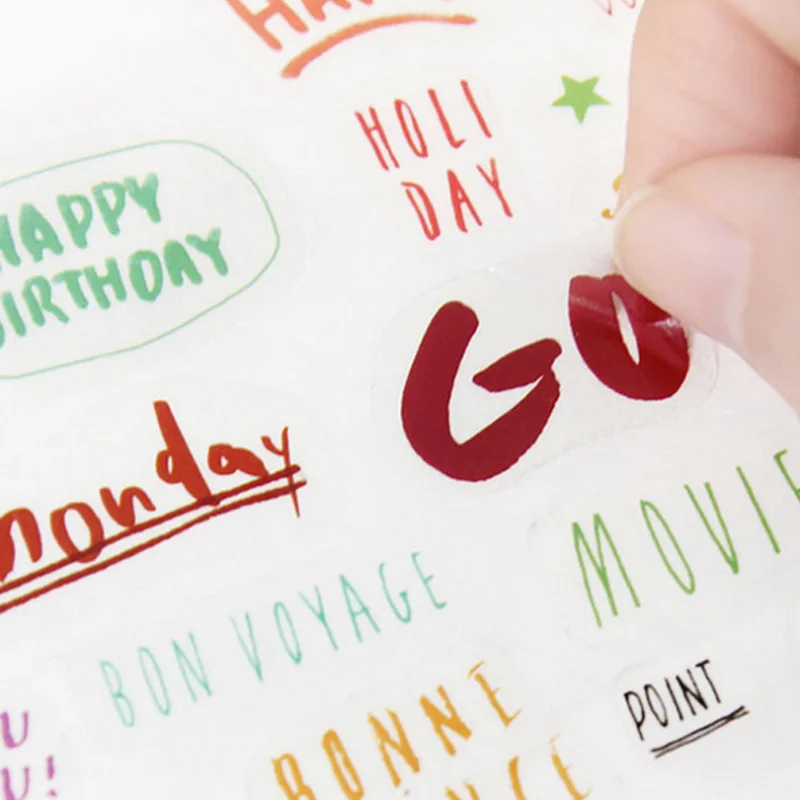 HOLI
DAY
HAPPY
BIRTHDAY
GO
monday
MOVIE
BON VOYAGE
POINT
BONNE